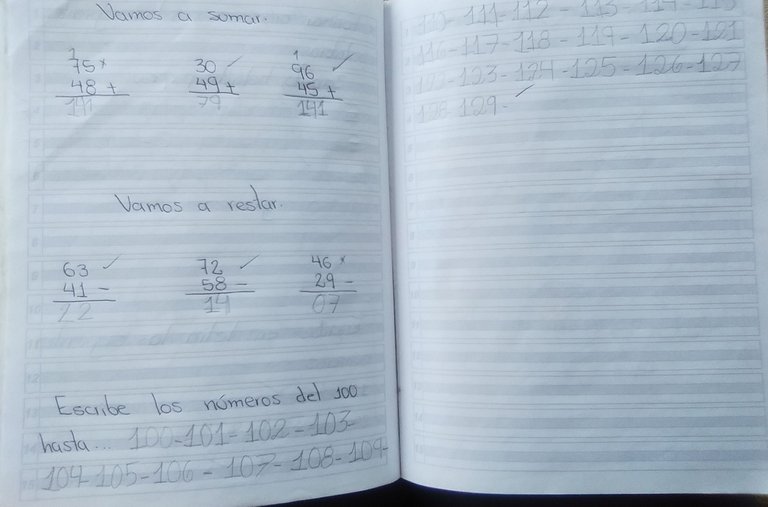 Vamos a sumar.
1 1
75 x 30 ✓ 96 ✓
48 + 49 + 45 +
79 141
Vamos a restar.
63 ✓ 72 ✓ 46 x
41 - 58 - 29 -
22 14 07
Escribe los números del 100
hasta... 100-101-102-103-
104-105-106-107-108-109-
110-111-112-113-114-115
116-117-118-119-120-121
122-123-124-125-126-127
128-129- ✓